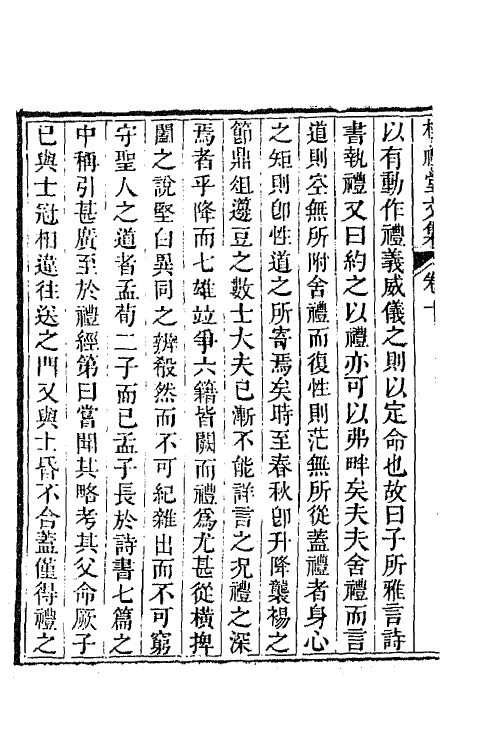 校禮堂文集 卷十
以有動作禮義威儀之則以定命也故曰子所雅言詩
書執禮又曰約之以禮亦可以弗畔矣夫夫舍禮而言
道則空無所附舍禮而復性則茫無所從蓋禮者身心
之矩則卽性道之所寄焉矣時至春秋卽升降襲裼之
節鼎俎籩豆之數士大夫已漸不能詳言之況禮之深
焉者乎降而七雄竝爭六籍皆闕而禮爲尤甚從橫捭
闔之說堅白異同之辨殺然而不可紀雜出而不可窮
守聖人之道者孟荀二子而已孟子長於詩書七篇之
中稱引甚廣至於禮經第曰嘗聞其略考其父命厥子
已與士冠相違往送之門又與士昏不合蓋僅得禮之